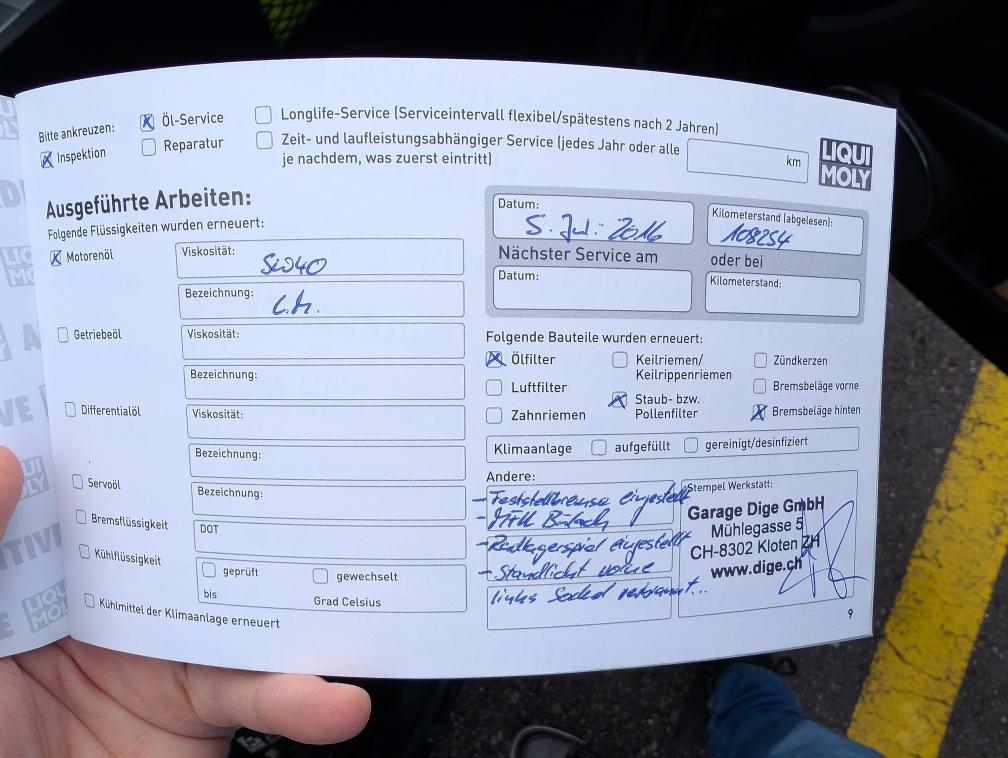 Bitte ankreuzen:
Öl-Service
Longlife-Service (Serviceintervall flexibel/spätestens nach 2 Jahren)
Inspektion
Reparatur
Zeit- und laufleistungsabhängiger Service (jedes Jahr oder alle
je nachdem, was zuerst eintritt)
km
LIQUI
MOLY
Ausgeführte Arbeiten:
Folgende Flüssigkeiten wurden erneuert:
Motorenöl
Viskosität:
5W40
Bezeichnung:
L.M.
Getriebeöl
Viskosität:
Bezeichnung:
Differentialöl
Viskosität:
Bezeichnung:
Servoöl
Bezeichnung:
Bremsflüssigkeit
DOT
Kühlflüssigkeit
geprüft
gewechselt
bis
Grad Celsius
Kühlmittel der Klimaanlage erneuert
Datum:
5. Juli 2016
Kilometerstand (abgelesen):
108254
Nächster Service am
oder bei
Datum:
Kilometerstand:
Folgende Bauteile wurden erneuert:
Ölfilter
Keilriemen/
Keilrippenriemen
Zündkerzen
Luftfilter
Staub- bzw.
Pollenfilter
Bremsbeläge vorne
Zahnriemen
Bremsbeläge hinten
Klimaanlage
aufgefüllt
gereinigt/desinfiziert
Andere:
- Feststellbremse eingestellt
- MFK Bülach
- Radlagerspiel eingestellt
- Standlicht vorne
links Sockel verbrannt...
Stempel Werkstatt:
Garage Dige GmbH
Mühlegasse 5
CH-8302 Kloten ZH
www.dige.ch
9